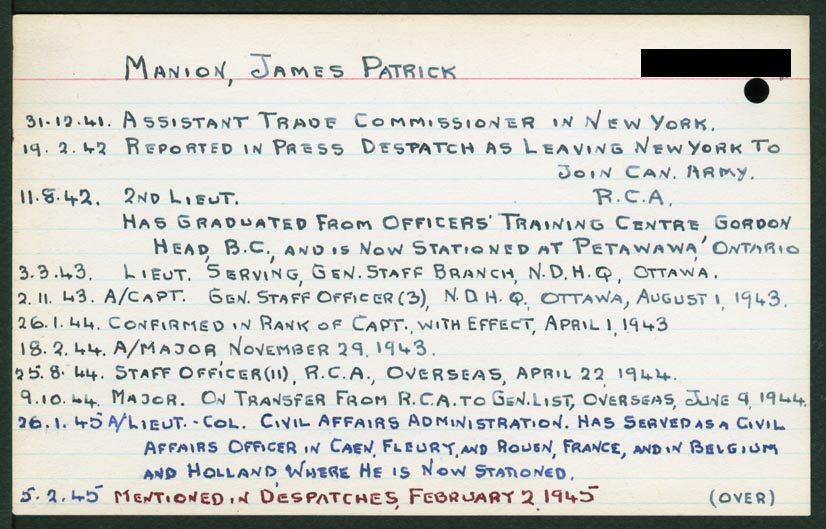 MANION, JAMES PATRICK
31.12.41. ASSISTANT TRADE COMMISSIONER IN NEW YORK.
19.2.42 REPORTED IN PRESS DESPATCH AS LEAVING NEW YORK TO
JOIN CAN. ARMY.
11.8.42. 2ND LIEUT. R.C.A.
HAS GRADUATED FROM OFFICERS' TRAINING CENTRE GORDON
HEAD, B.C., AND IS NOW STATIONED AT PETAWAWA, ONTARIO
3.3.43. LIEUT. SERVING, GEN. STAFF BRANCH, N.D.H.Q., OTTAWA.
2.11.43. A/CAPT. GEN. STAFF OFFICER (3), N.D.H.Q., OTTAWA, AUGUST 1, 1943.
26.1.44. CONFIRMED IN RANK OF CAPT., WITH EFFECT, APRIL 1, 1943
18.2.44. A/MAJOR, NOVEMBER 29, 1943.
25.8.44. STAFF OFFICER (11), R.C.A., OVERSEAS, APRIL 22, 1944.
9.10.44. MAJOR. ON TRANSFER FROM R.C.A. TO GEN. LIST, OVERSEAS, JUNE 9, 1944.
26.1.45 A/LIEUT.-COL. CIVIL AFFAIRS ADMINISTRATION. HAS SERVED AS A CIVIL
AFFAIRS OFFICER IN CAEN, FLEURY, AND ROUEN, FRANCE, AND IN BELGIUM
AND HOLLAND, WHERE HE IS NOW STATIONED.
5.2.45 MENTIONED IN DESPATCHES, FEBRUARY 2, 1945 (OVER)